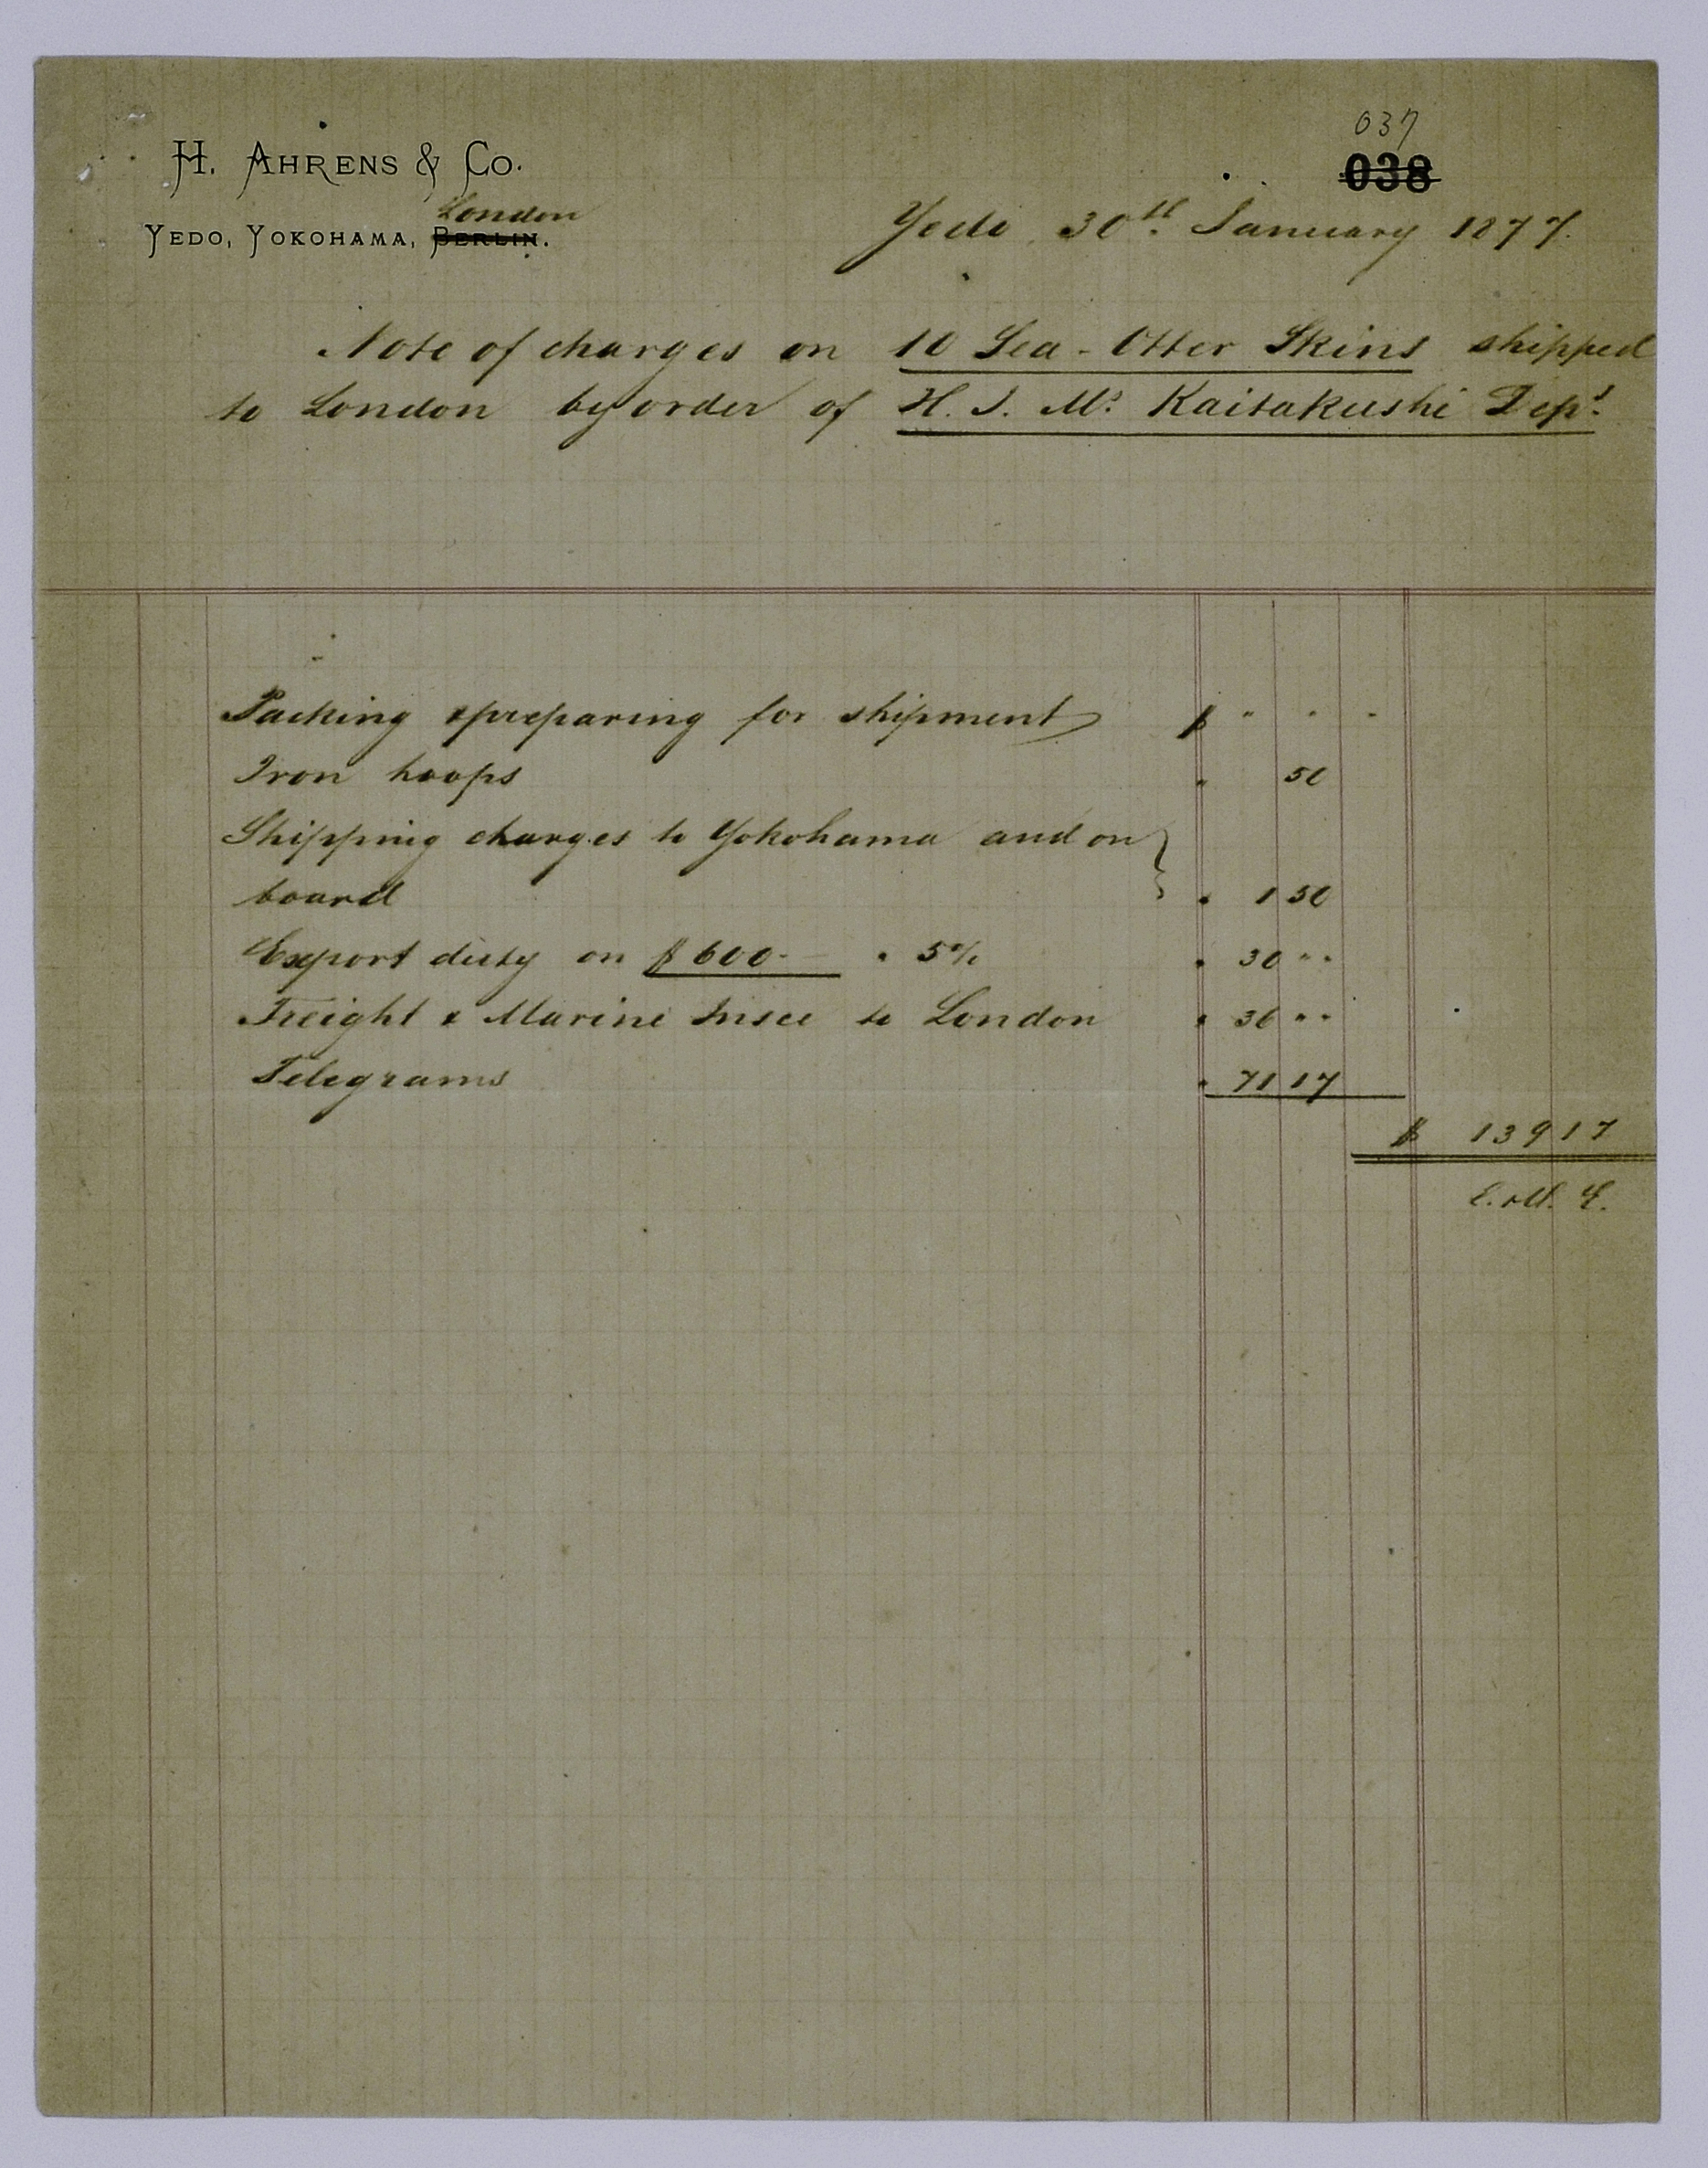 037
038
H. AHRENS & CO.
London
YEDO, YOKOHAMA, BERLIN.
Yedo 30th January 1877.
Note of charges on 10 Sea-Otter Skins shipped
to London by order of H. I. M's Kaitakushi Dept.
Packing & preparing for shipment $ " " "
Iron hoops " 50
Shipping charges to Yokohama and on
board " 1 50
Export duty on $ 600.– " 5% " 30 " "
Freight & Marine Insce to London " 36 " "
Telegrams " 71 17
$ 139 17
E. & O. E.